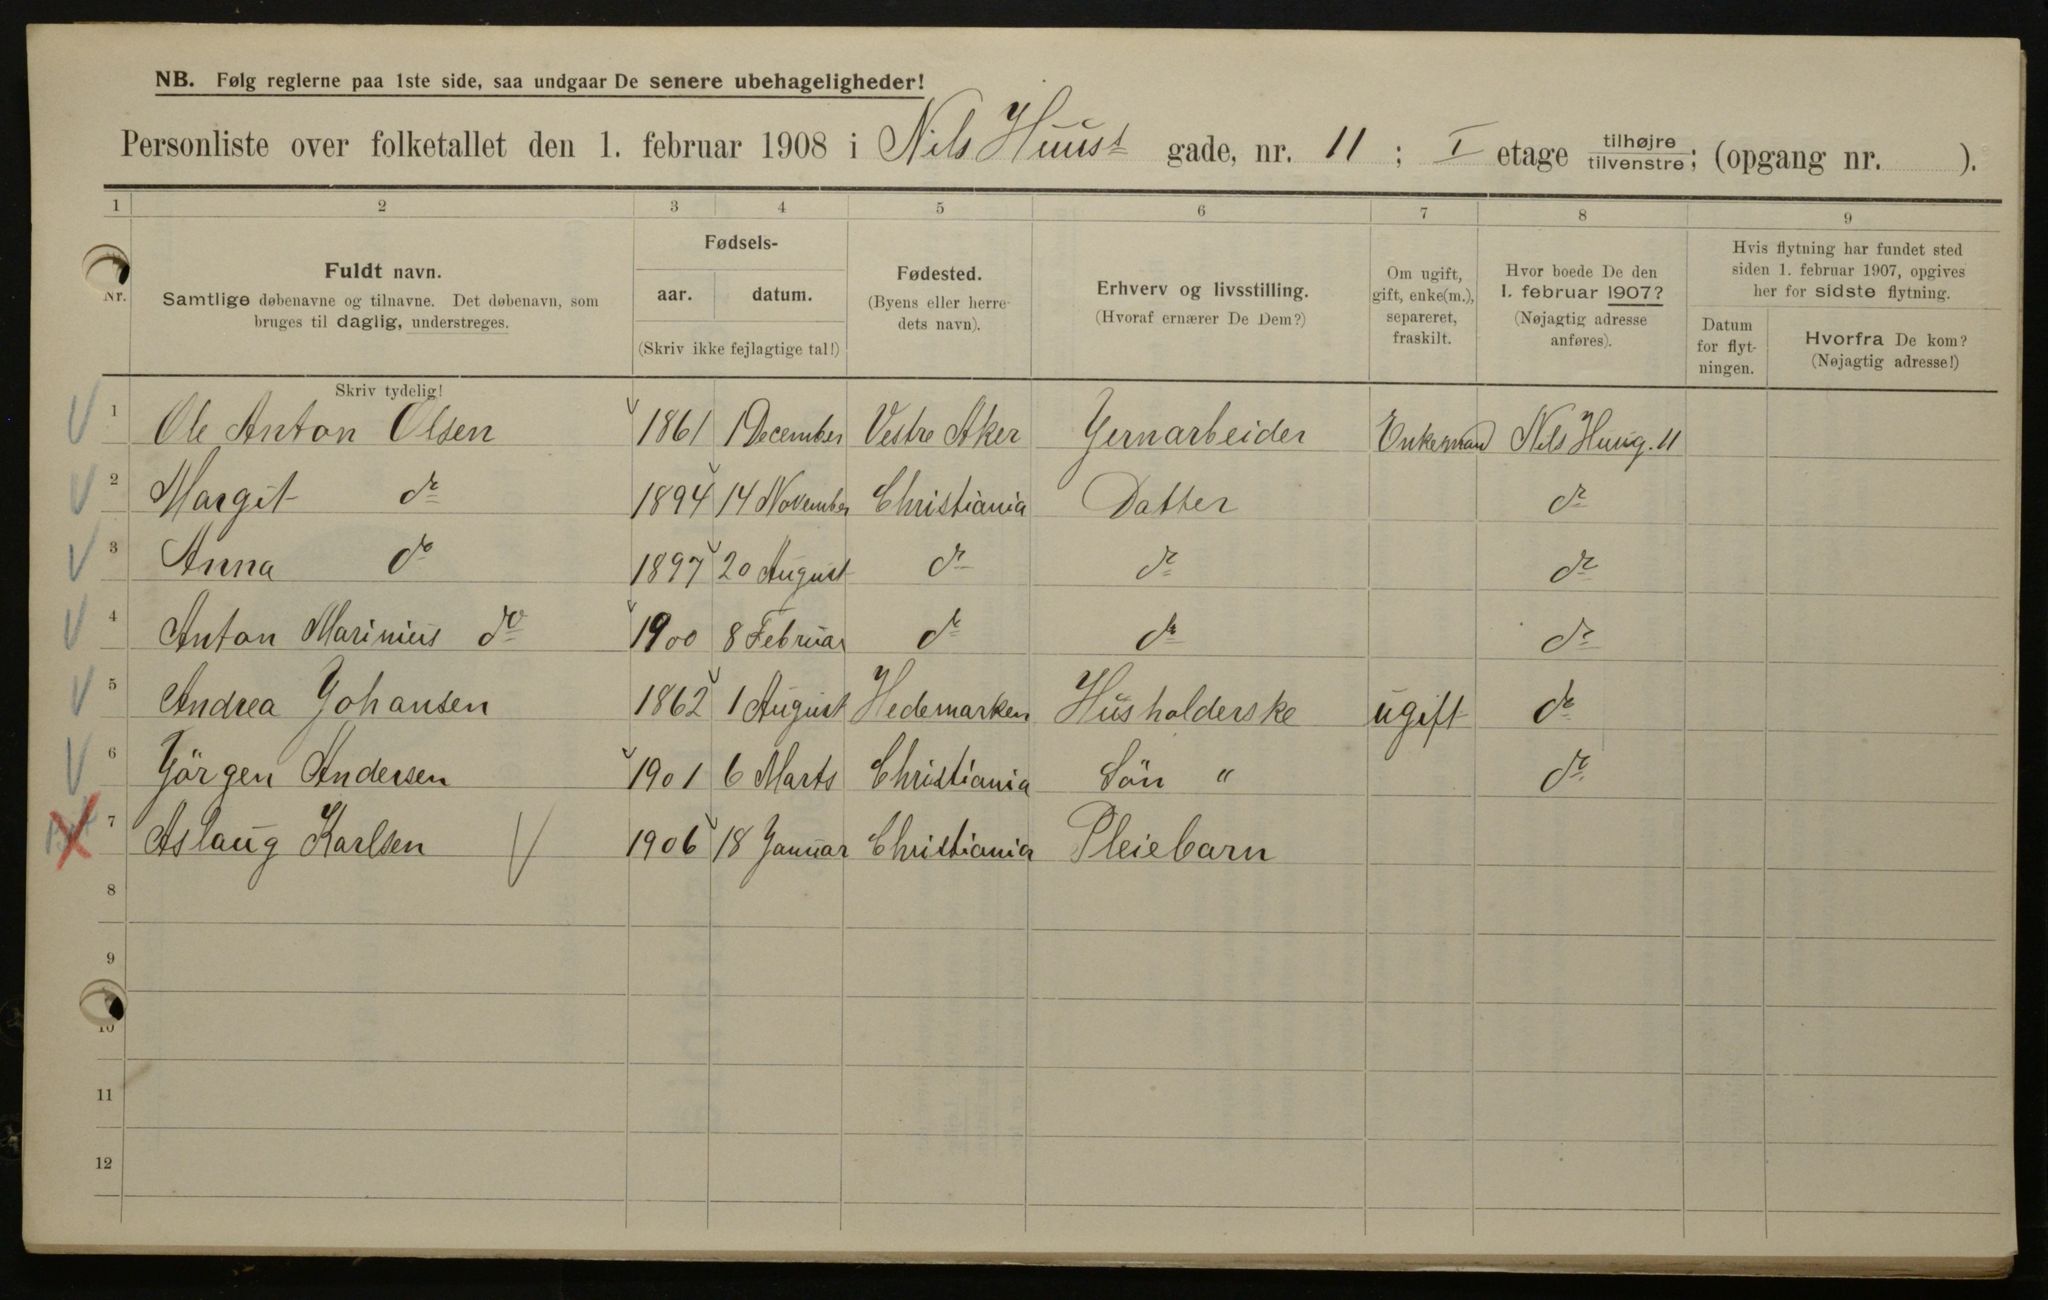 NB. Følg reglerne paa 1ste side, saa undgaar De senere ubehageligheder!
Personliste over folketallet den 1. februar 1908 i Nils Huust gade, nr. 11; I etage tilhøjre/tilvenstre; (opgang nr. ).
1 2 3 4 5 6 7 8 9
Nr.
Fuldt navn.
Samtlige døbenavne og tilnavne. Det døbenavn, som
bruges til daglig, understreges.
Skriv tydelig!
Fødsels-
aar. datum.
(Skriv ikke fejlagtige tal!)
Fødested.
(Byens eller herre-
dets navn).
Erhverv og livsstilling.
(Hvoraf ernærer De Dem?)
Om ugift,
gift, enke(m.),
separeret,
fraskilt.
Hvor boede De den
1. februar 1907?
(Nøjagtig adresse
anføres).
Hvis flytning har fundet sted
siden 1. februar 1907, opgives
her for sidste flytning.
Datum
for flyt-
ningen.
Hvorfra De kom?
(Nøjagtig adresse!)
1 Ole Anton Olsen 1861 1 December Vestre Aker Yernarbeider Enkemand Nils Huug. 11
2 Margit do 1894 14 November Christiania Datter do
3 Anna do 1897 20 August do do do
4 Anton Marinius do 1900 8 Februar do do do
5 Andrea Johansen 1862 1 August Hedemarken Husholderske ugift do
6 Jörgen Andersen 1901 6 Marts Christiania Sön " do
7 Aslaug Karlsen 1906 18 Januar Christiania Pleiebarn
8
9
10
11
12